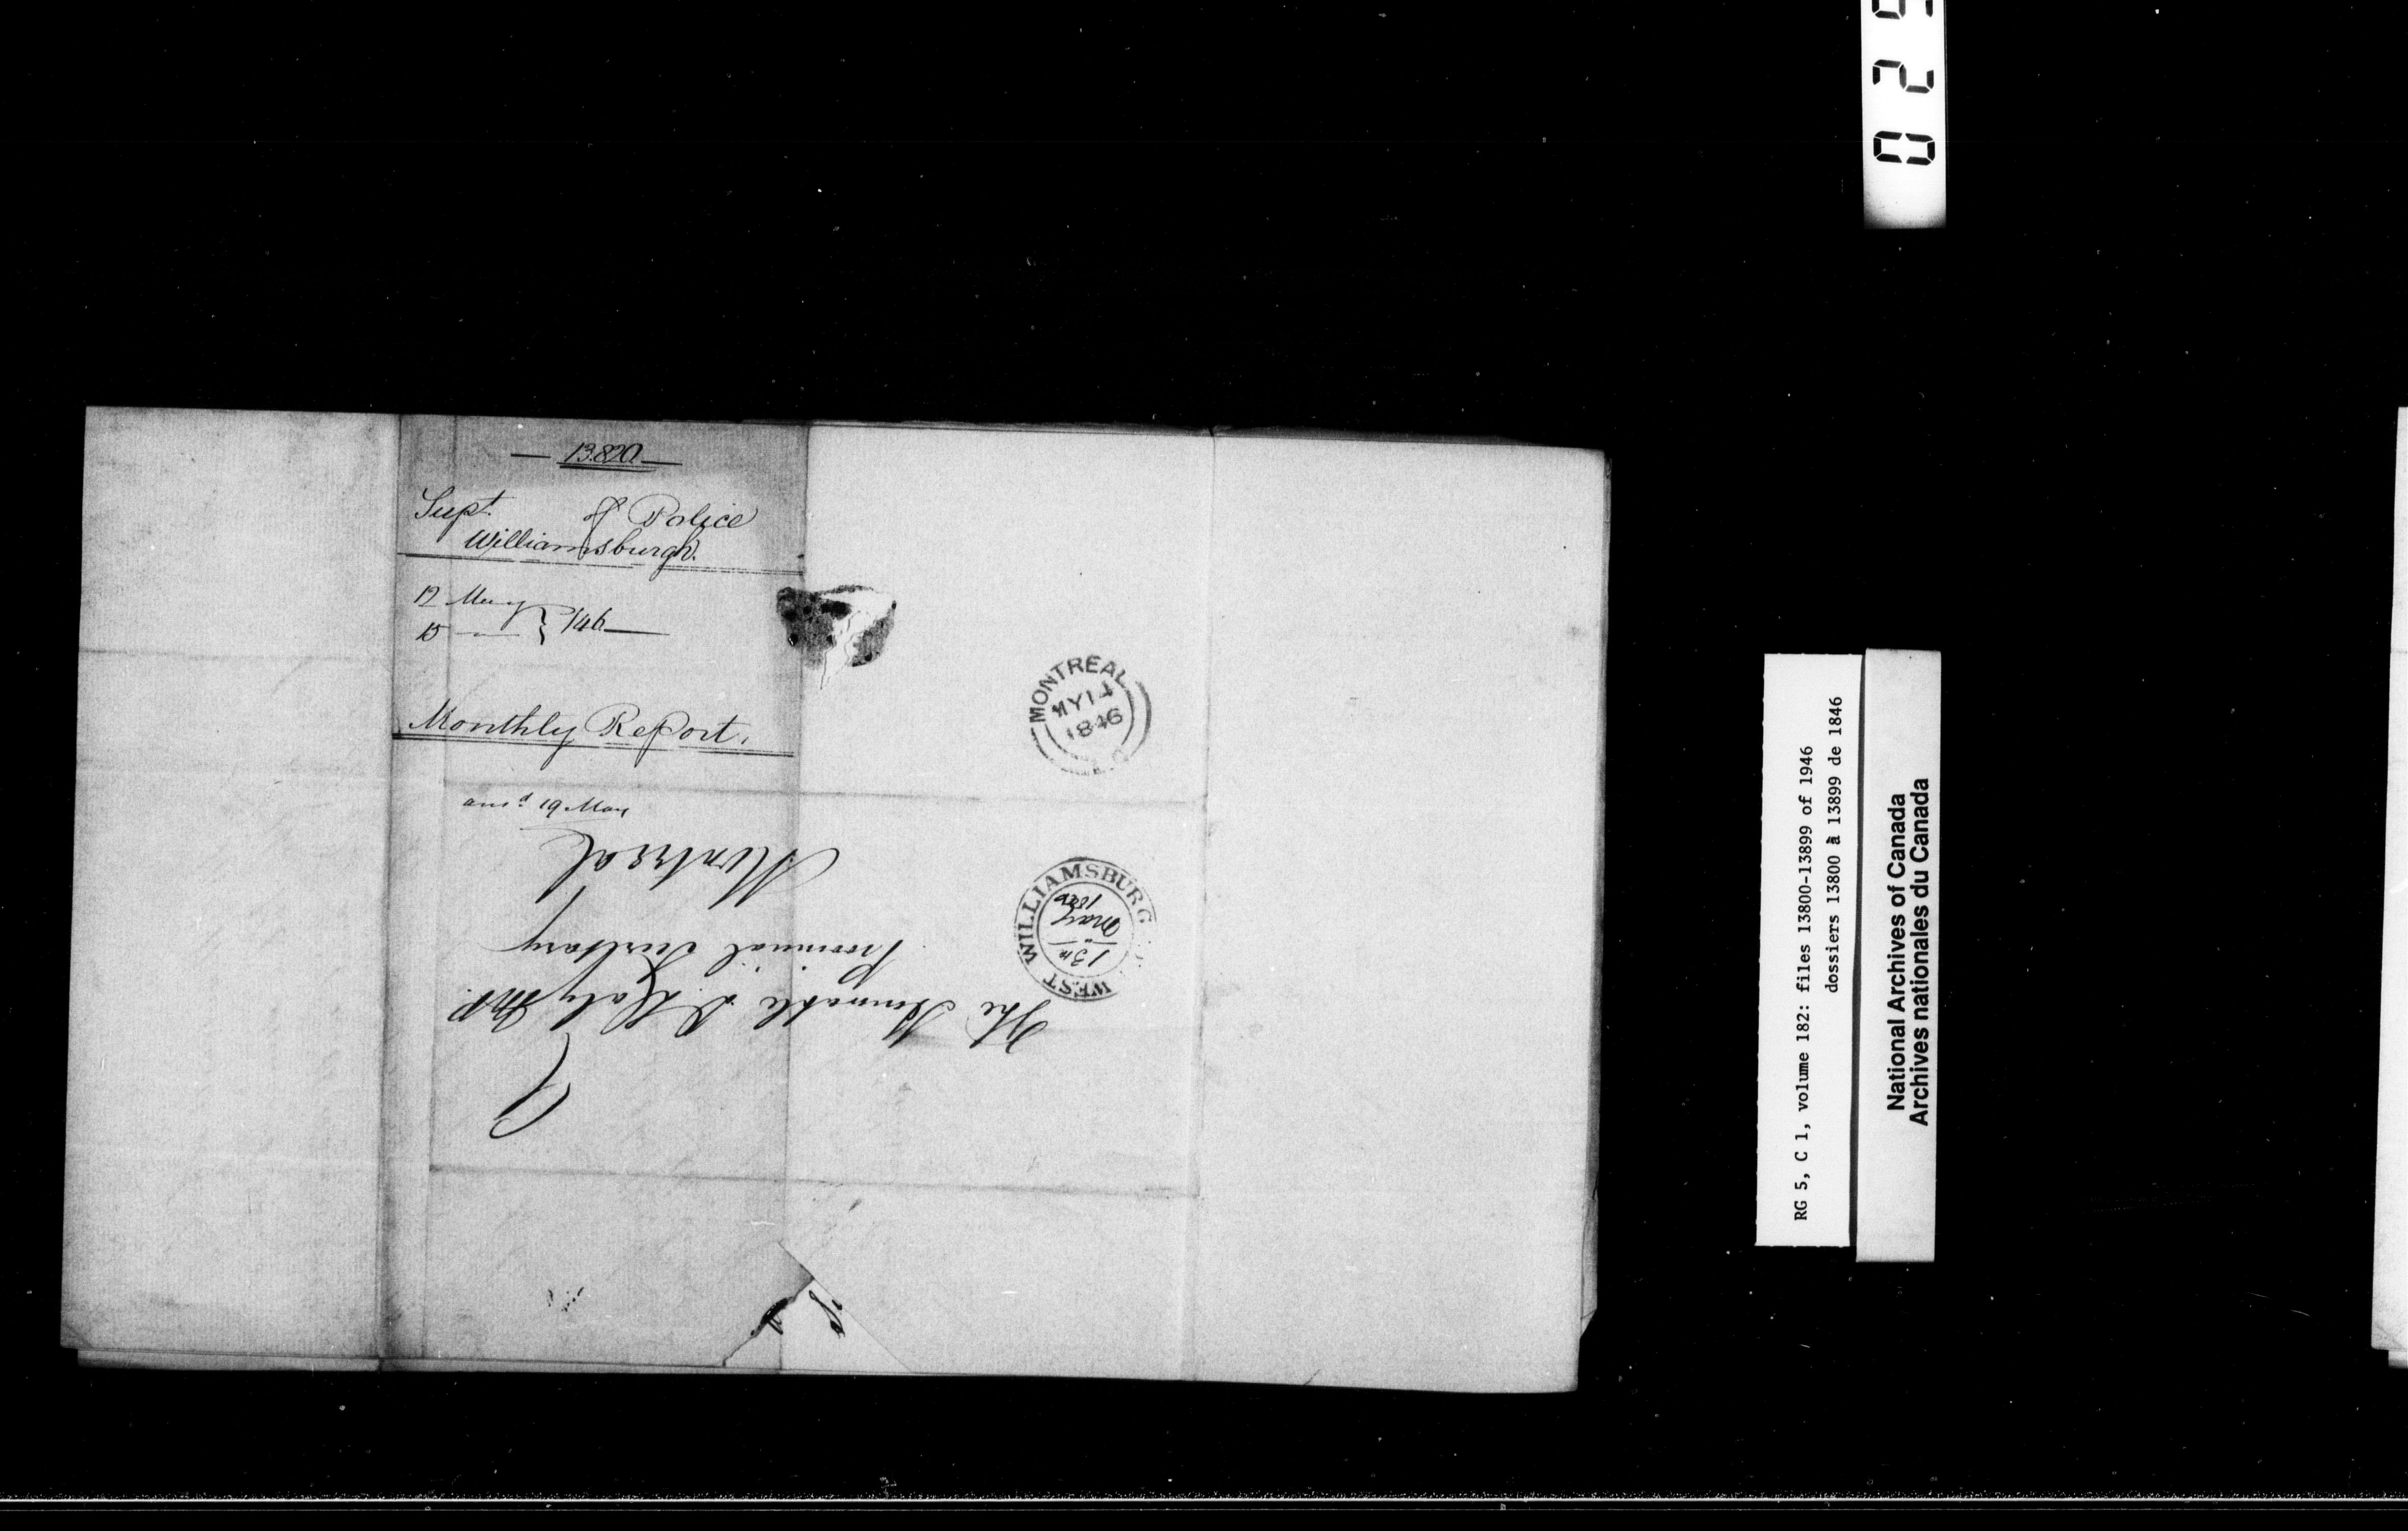 — 13.820 —
Supt. of Police
Williamsburgh.
12 May } /46 —
15 — }
Monthly Report.
ansd 19 May
The Honorable D. Daly M.P.
Provincial Secretary
Montreal
MONTREAL
MY 14
1846
WEST WILLIAMSBURG
13th
May
1846
029
RG 5, C 1, volume 182: files 13800-13899 of 1946
dossiers 13800 à 13899 de 1846
National Archives of Canada
Archives nationales du Canada